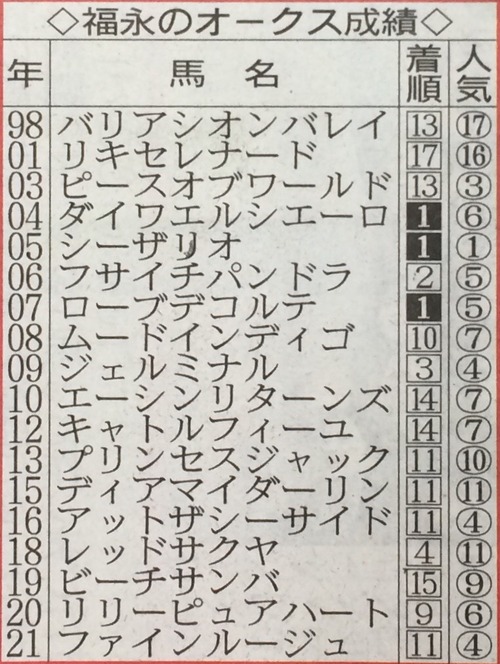 ◇福永のオークス成績◇
年 馬名 着順 人気
98 バリアシオンバレイ 13 ⑰
01 リキセレナード 17 ⑯
03 ピースオブワールド 13 ③
04 ダイワエルシエーロ 1 ⑥
05 シーザリオ 1 ①
06 フサイチパンドラ 2 ⑤
07 ローブデコルテ 1 ⑤
08 ムードインディゴ 10 ⑦
09 ジェルミナル 3 ④
10 エーシンリターンズ 14 ⑦
12 キャトルフィーユ 14 ⑦
13 プリンセスジャック 11 ⑩
15 ディアマイダーリン 11 ⑪
16 アットザシーサイド 11 ④
18 レッドサクヤ 4 ⑪
19 ビーチサンバ 15 ⑨
20 リリーピュアハート 9 ⑥
21 ファインルージュ 11 ④